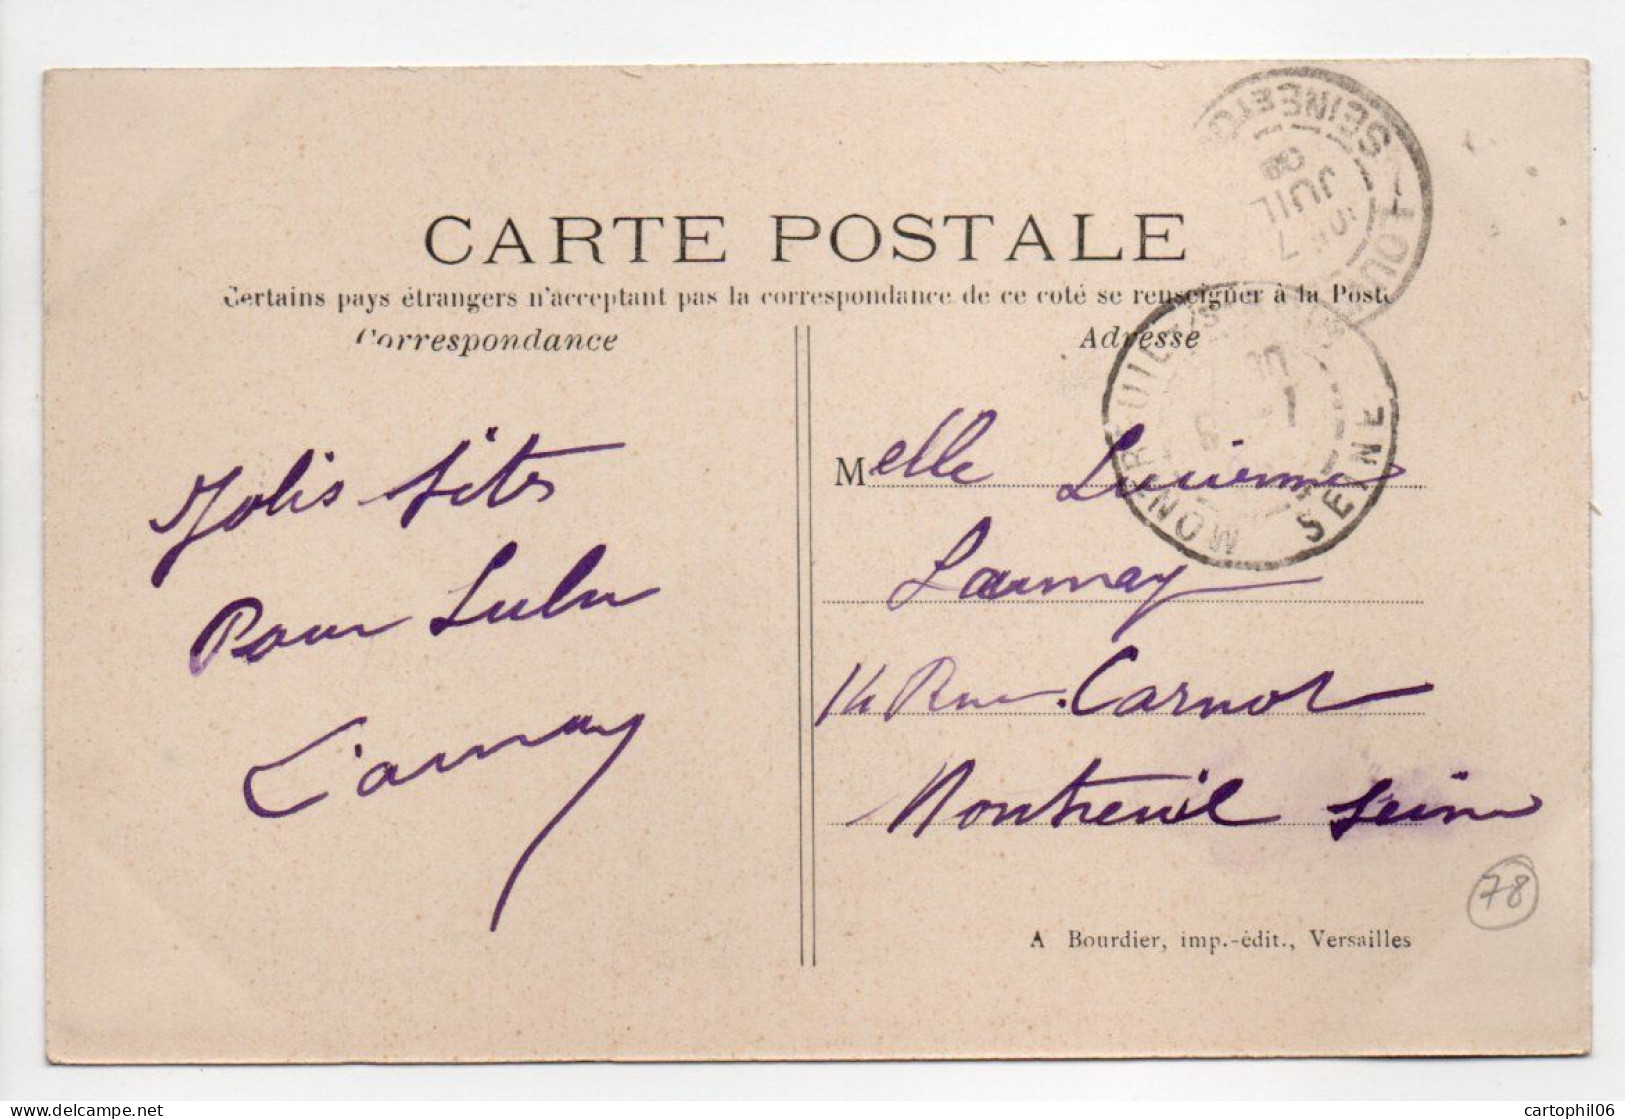 CARTE POSTALE
Certains pays étrangers n'acceptant pas la correspondance de ce coté se renseigner à la Poste
Correspondance
Adresse
Jolis sites
Pour Lulu
Launay
Melle Lucienne
Launay
14 Rue Carnot
Montreuil Seine
A Bourdier, imp.-édit., Versailles
78
SEINE
JUIL
08
MONTREUIL
SEINE
cartophil06